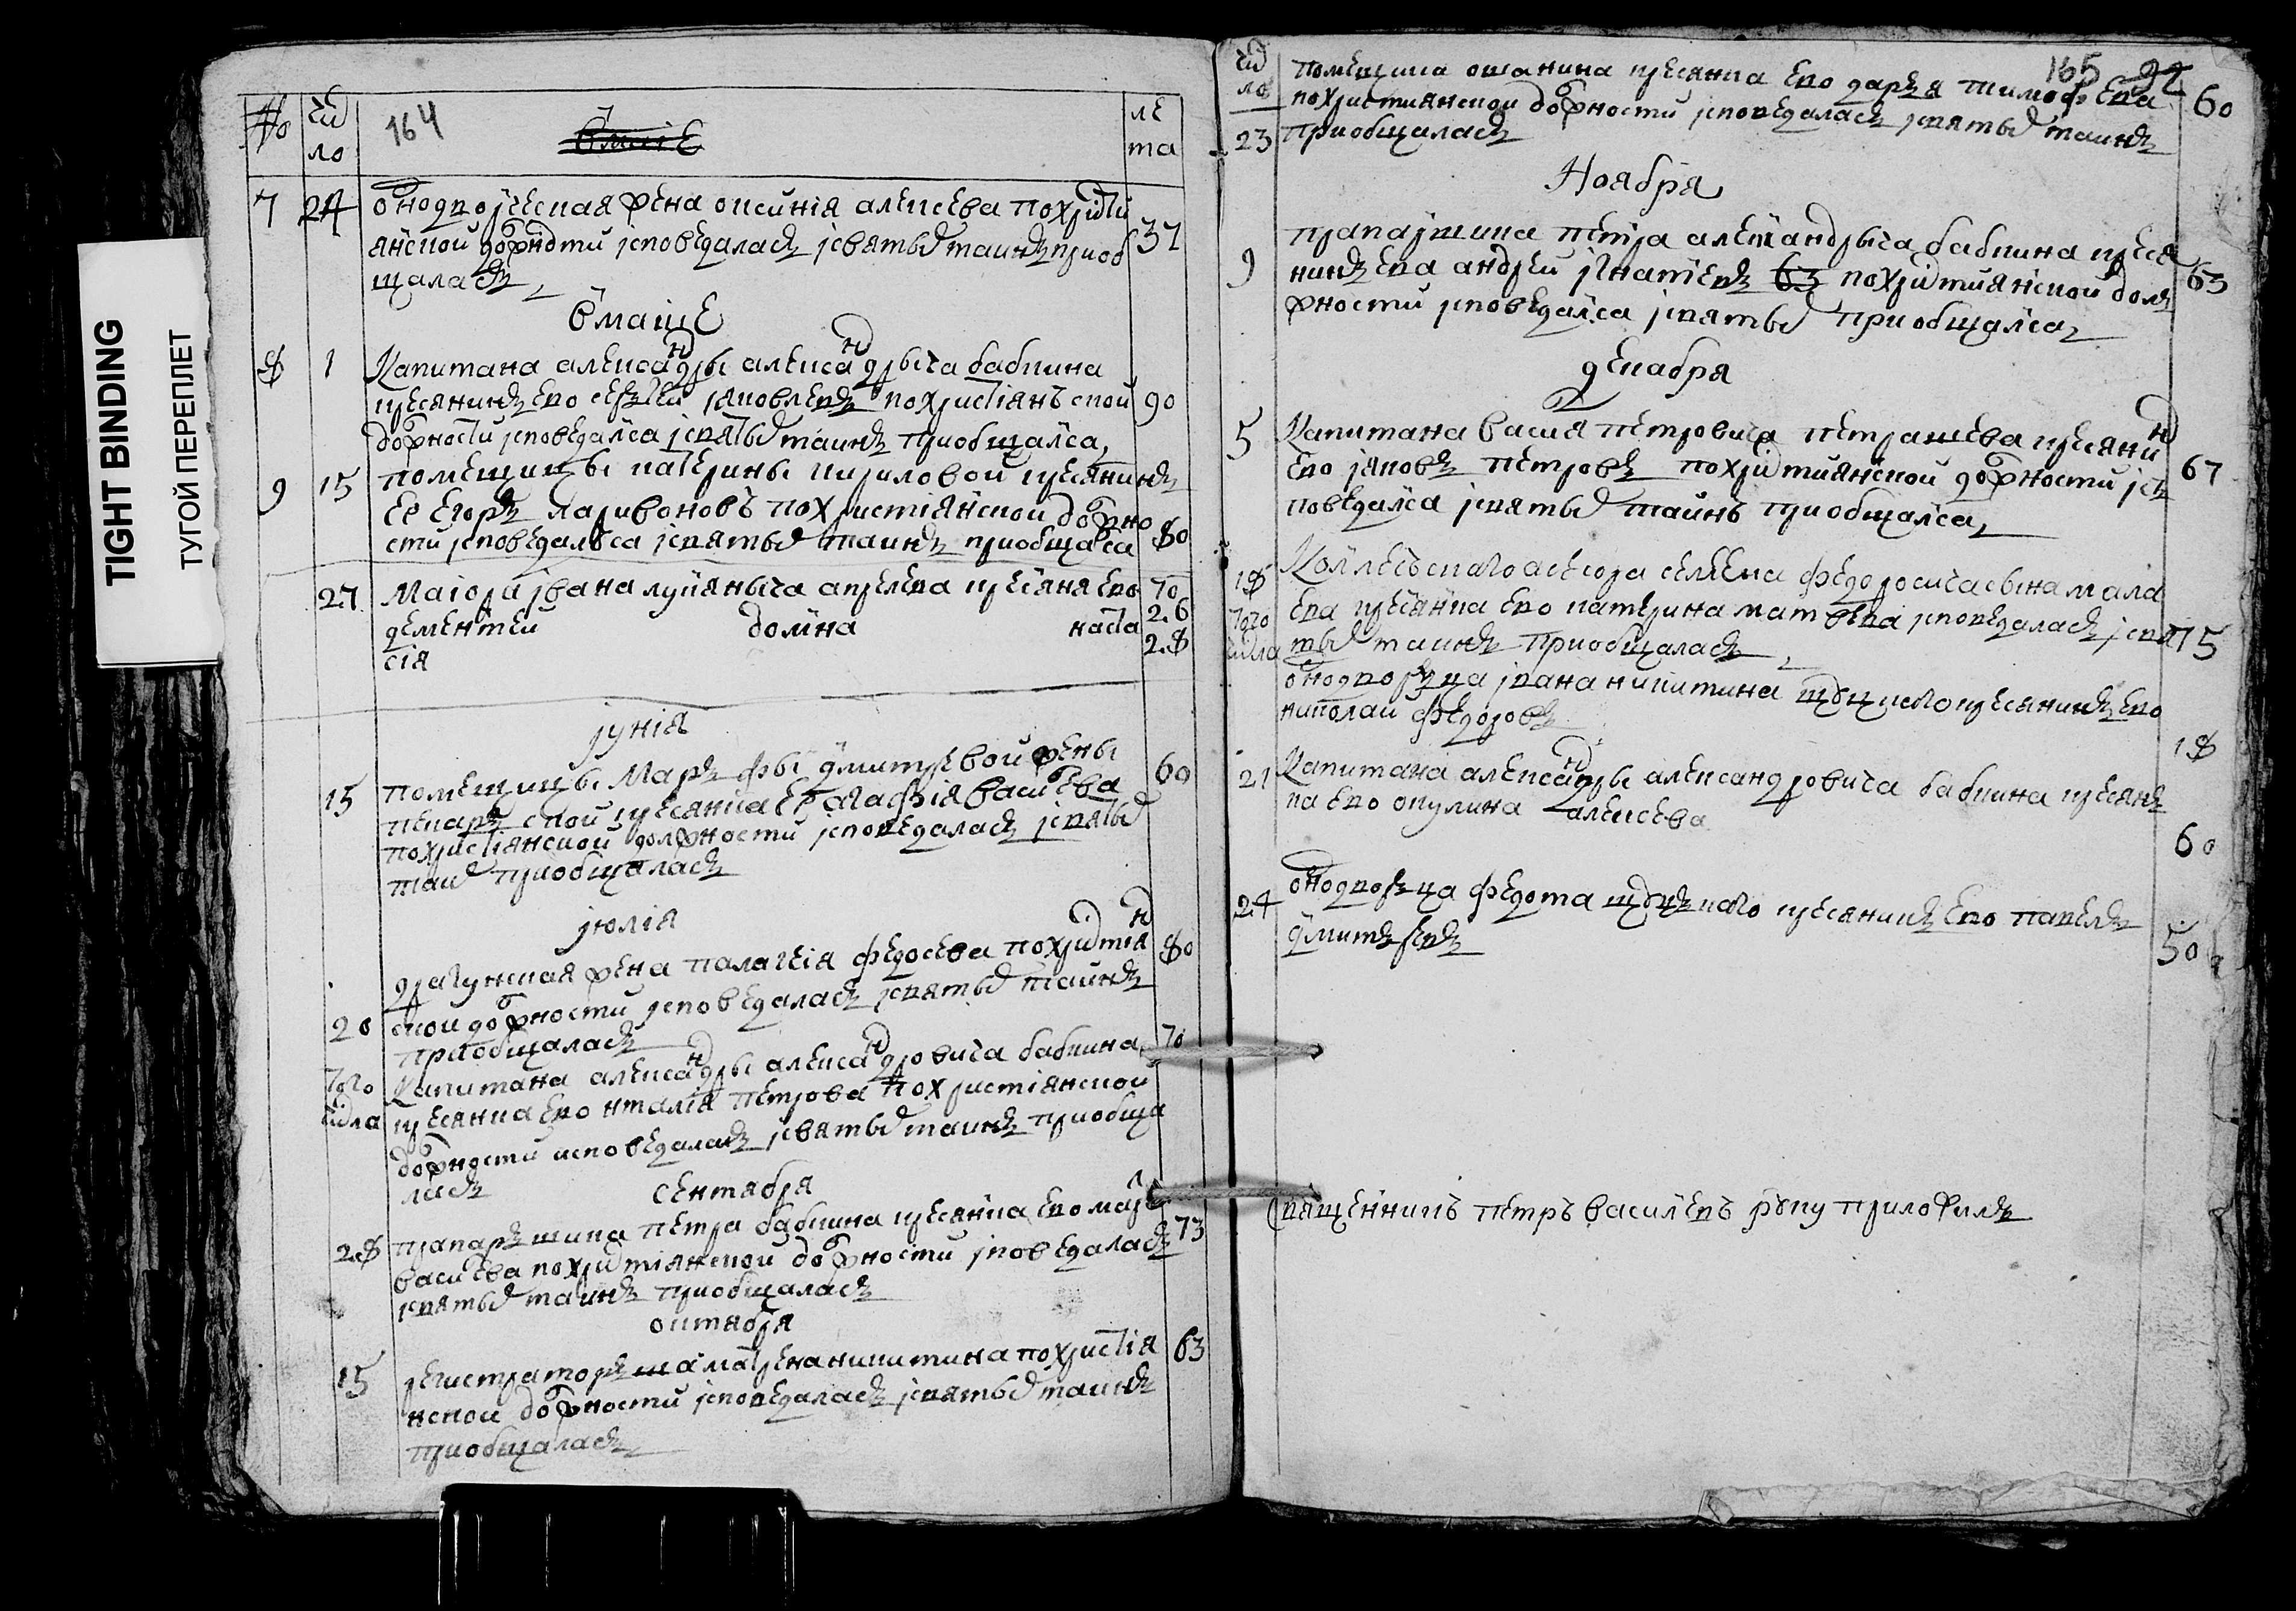 TIGHT BINDING
ТУГОЙ ПЕРЕПЛЕТ
№ число 164 лета
7 24 однодворческая жена оксиния алексева похристи 37
янской должности исповедалась исвятых таинъ приоб
щалась
вмаие
8 1 Капитана александры александрыча бабкина
кресянинъ ево сергей яковлевъ похристіянъской 90
должности исповедался исвятых таинъ приобщался
9 15 помещицы катерины кириловой кресянинъ
ее егоръ ларивоновъ похристіянской должно
сти исповедалъса исвятых таинъ приобщался 80
27 Маіора ивана лукяныча апрелева кресяня ево 70
дементей домна наста 26
сія 28
июнія
15 помещицы Маръфы дмитревой жены 60
кресянка ее агафія василева
похристіянской должности исповедалась исвятых
таин приобщалась
июлія
драгунская жена палагея федосева похристіян 80
20 ской должности исповедалась исвятых таинъ
приобщалась
того Капитана александры александровича бабкина 70
числа кресянка ево нталія петрова похристіянской
должности исповедалась исвятых таинъ приобща
лась сентября
28 прапаръшика петра бабкина кресянка ево марья 73
василева похристіянской должности исповедалась
исвятых таинъ приобщалась
октября
15 регистраторъша матрена никитина похристія 63
нской должности исповедалась исвятых таинъ
приобщалась
165
число помещика ошанина кресянка ево даръя тимофева 60
похристиянской должности исповедалась исвятых таинъ
23 приобщалась
Ноября
прапаршика петра александрыча бабкина креся
9 нинъ ева андрей игнатіевъ 63 похристиянской долъ 63
жности исповедался исвятых приобщался
декабря
5 Капитана василя петровича петрашева кресянин
ево яковъ петровъ похристиянской должности ис 67
поведался исвятых таинъ приобщался
18 Коллежъскаго асесора семена федоровича сына мала
того ева кресянка ево катерина матвева исповедалась исвя 75
числа тых таинъ приобщалась
однодворъца ивана никитина кресянинъ ево
николаи федоровъ
18
21 Капитана александры александровича бабкина кресянъ
ка ево окулина алексева
60
24 однодворъца федота кресянинъ ево павелъ
дмитъревъ 50
Священникъ петръ василевъ руку приложилъ